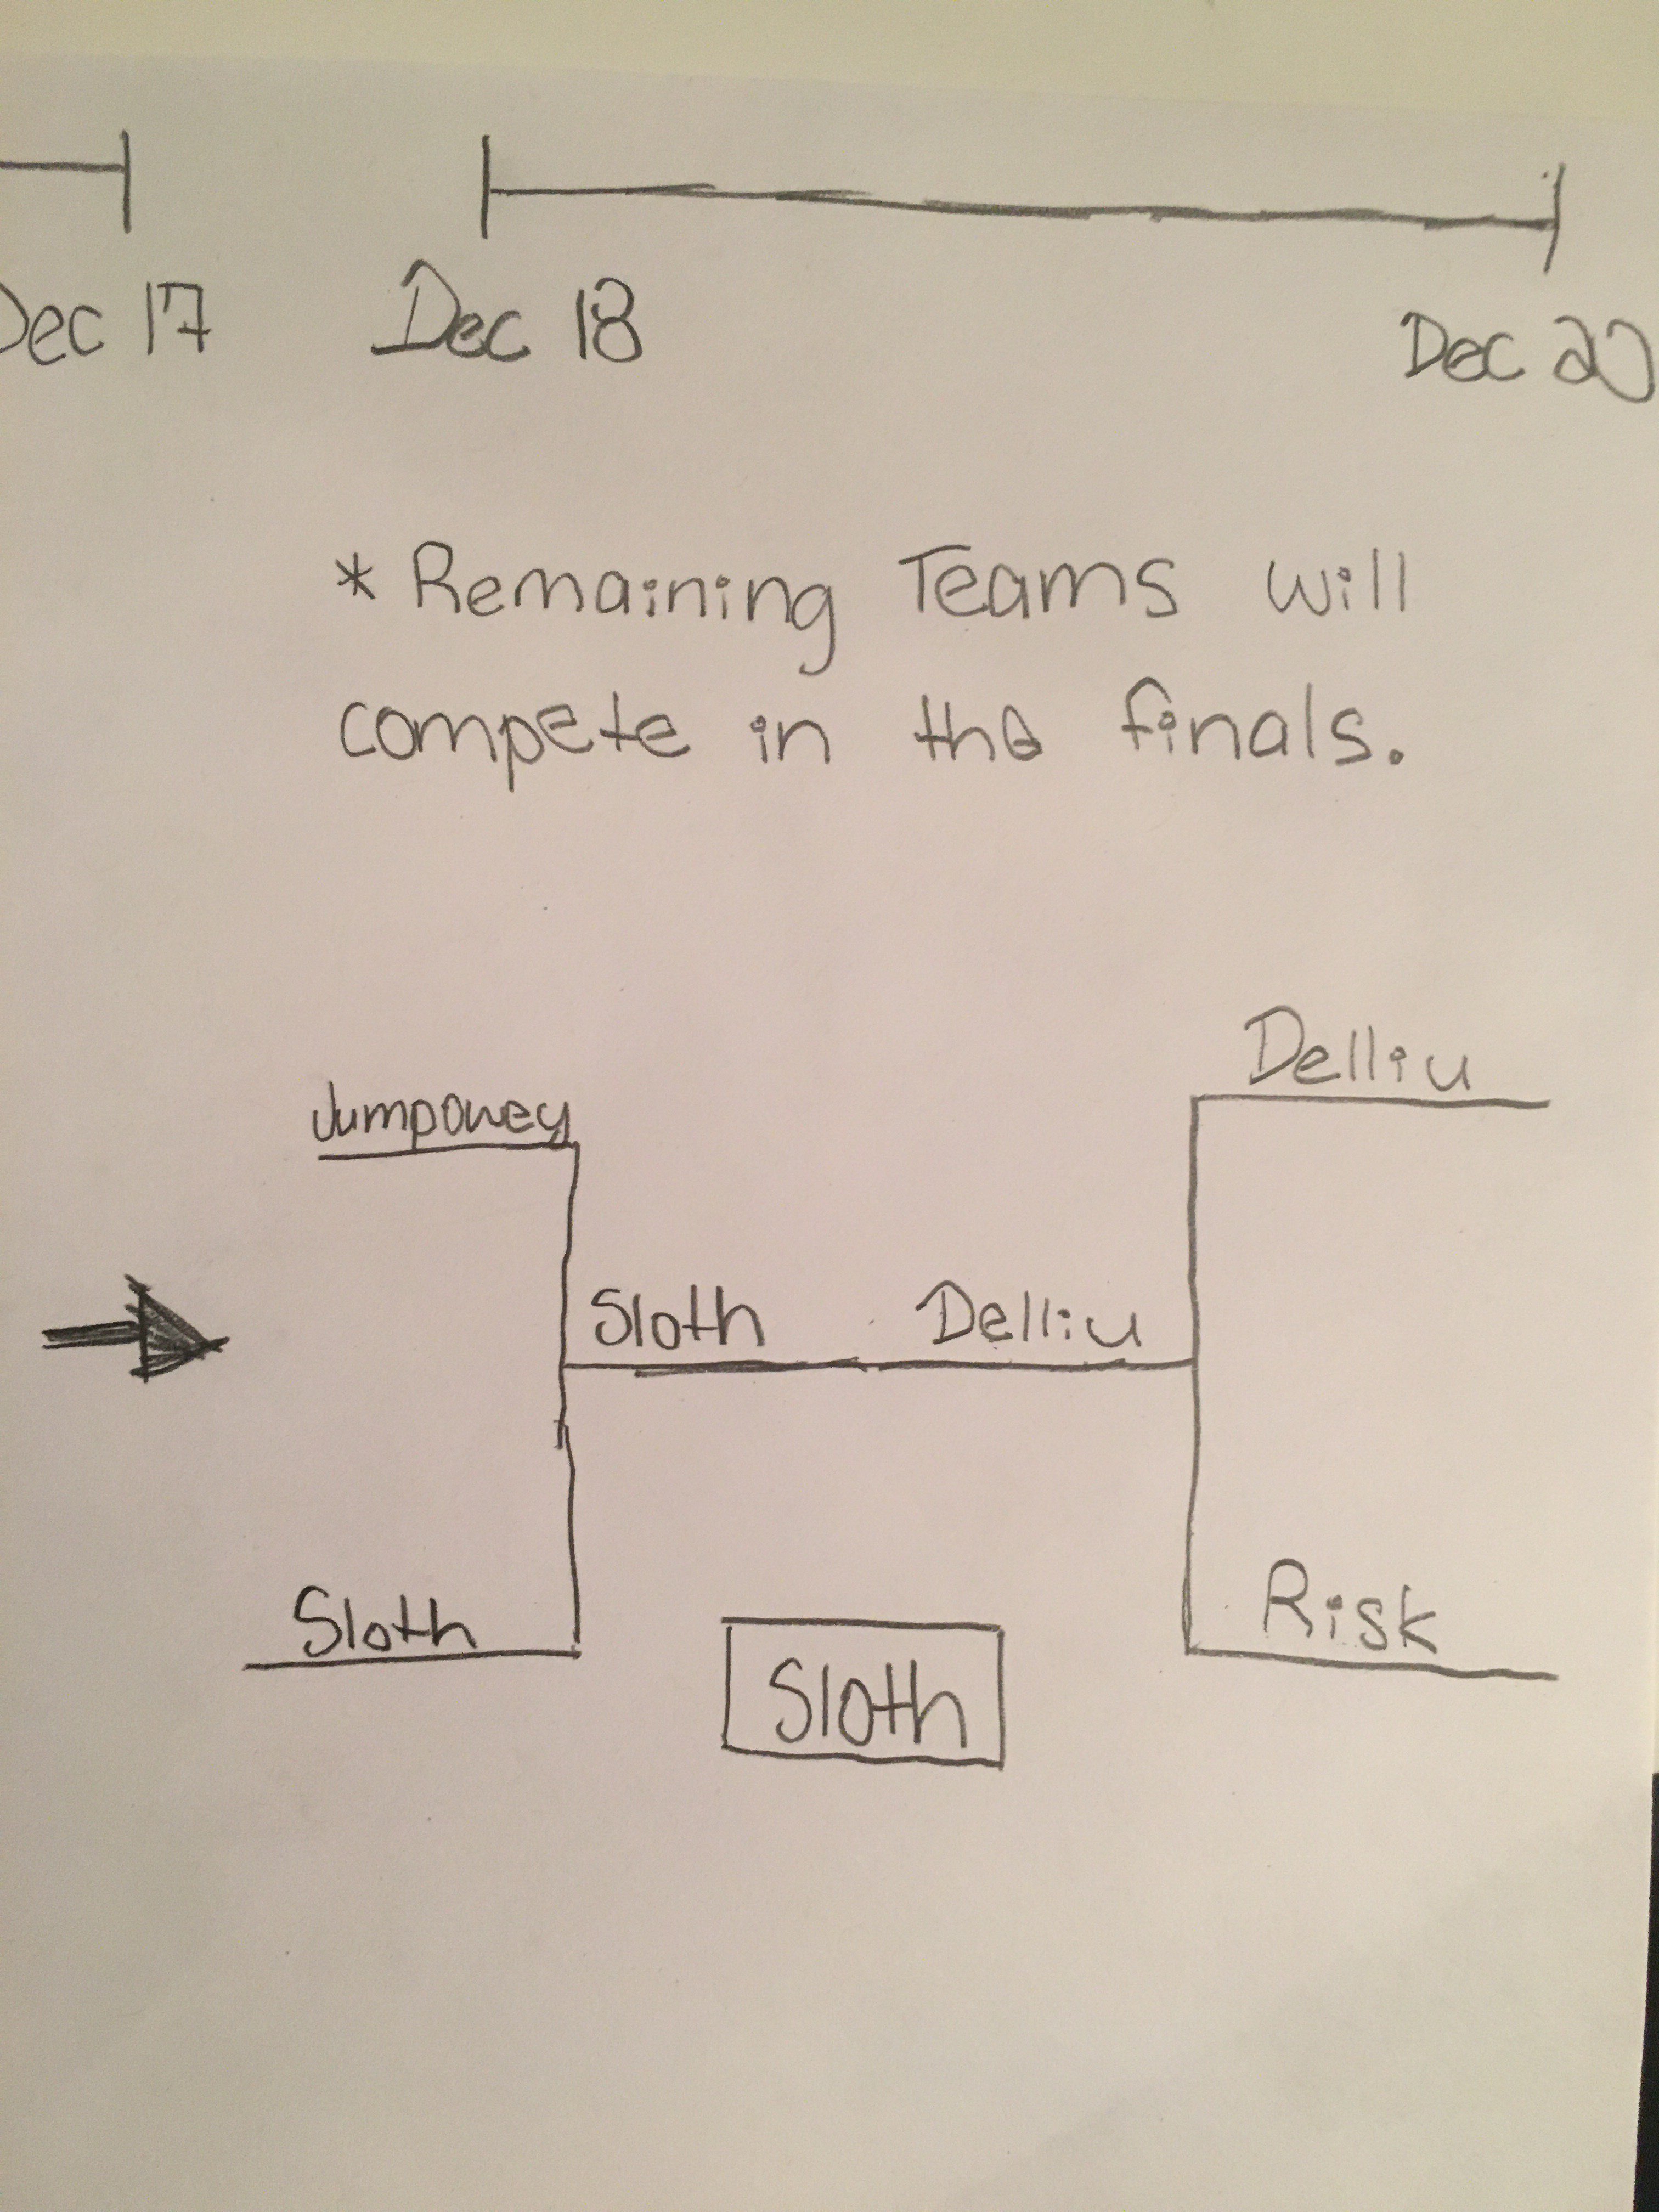 Dec 17 Dec 18 Dec 20
* Remaining Teams will
compete in the finals.
Delliu
Jumpowey
Sloth Delliu
Sloth
Risk
Sloth